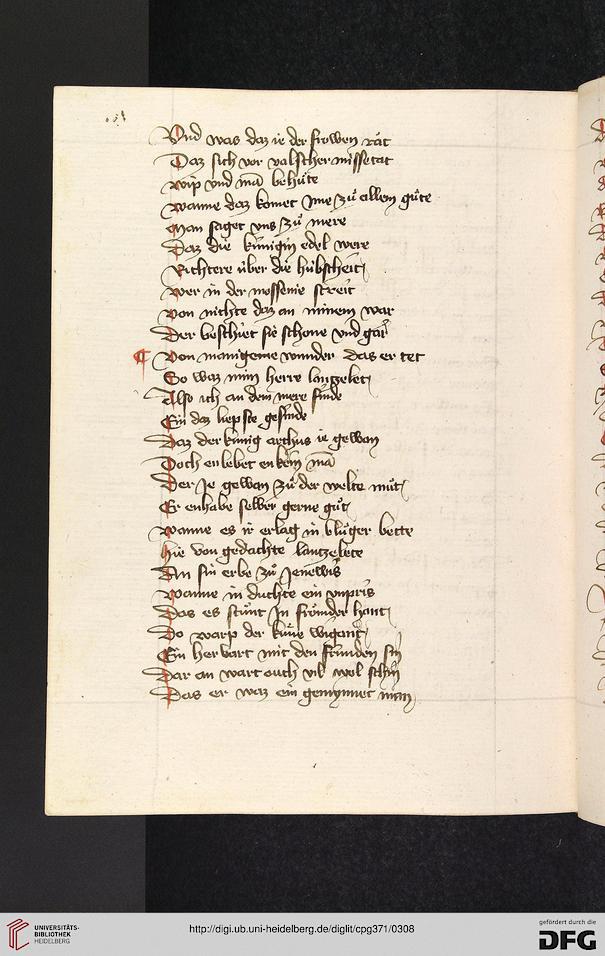 Vnd was daz ie der frowen rät
Daz sich vor valscher missetat
wip vnd mā behu̍te
wanne daz komet Jme zů allem gu̍te
Man saget vns zů mere
Daz die ku̍nigin edel were
Richtere u̍ber die hu̍bscheit
wer in der massenie streit
von nichte daz an minem war
Der beschiet sie schone vnd gar
Von manigeme wunder das er tet
So waz min herre lantzelet
Also ich an dem mere finde
Ein daz liepste gesinde
Daz der ku̍nig arthus ie gewan
Doch enlebet enkein mā
Der Je gewan zů der welte můt
Er enhabe selber gerne gůt
wanne es ir erlag in bluger bette
hie von gedachte lantzelete
An sin erbe zů Jenewis
wanne in duchte ein vnpris
Das es stůnt Jn frömder hant
Do warp der ku̍ne wigant
Ein hervart mit den fru̍nden sin
Dar an wart ouch vil wol schin
Das er waz ein gemynnet man
UNIVERSITÄTS-
BIBLIOTHEK
HEIDELBERG
http://digi.ub.uni-heidelberg.de/diglit/cpg371/0308
gefördert durch die
DFG